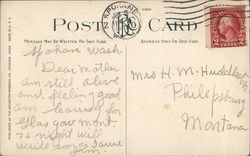 SPOKANE
POST CARD
MESSAGE MAY BE WRITTEN ON THIS SIDE
ADDRESS ONLY ON THIS SIDE
Spokan Wash.
Dear Mother
am still alive
and feeling good
am leaving for
Glasgow mont
to night will
write soon
Jim
Mrs H. M. Huddleson
Philipsburg
Montana
2 CENTS 2